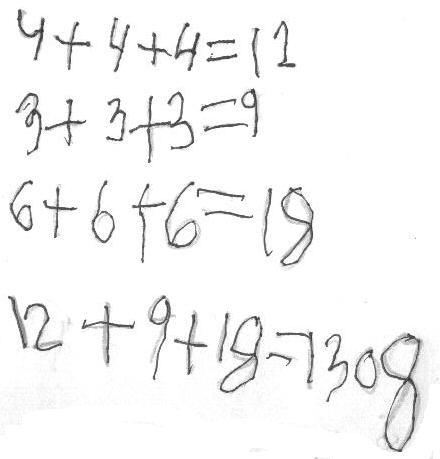 4+4+4=12
3+3+3=9
6+6+6=18
12+9+18=1308